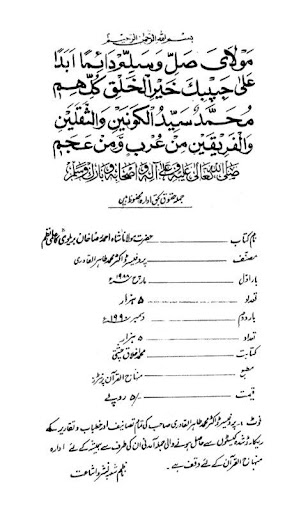 بسم اللہ الرحمن الرحیم
مَوْلَايَ صَلِّ وَسَلِّمْ دَائِمًا اَبَدًا
عَلٰى حَبِيْبِكَ خَيْرِ الْخَلْقِ كُلِّهِمِ
مُحَمَّدٌ سَيِّدُ الْكَوْنَيْنِ وَالثَّقَلَيْنِ
وَالْفَرِيْقَيْنِ مِنْ عُرْبٍ وَّمِنْ عَجَمِ
صلی اللہ تعالیٰ علیہ وعلیٰ آلہ واصحابہ وبارک وسلم
جملہ حقوق بحق ادارہ محفوظ ہیں
نام کتاب ـــ حضرت مولانا شاہ احمد رضا خان بریلوی کا علمی نظم
مصنف ـــ پروفیسر ڈاکٹر محمد طاہر القادری
بار اوّل ـــ مارچ ۱۹۸۸ء
تعداد ـــ ۵ ہزار
بار دوم ـــ دسمبر ۱۹۹۰ء
تعداد ـــ ۵ ہزار
کتابت ـــ محمد اخلاق چشتی
مطبع ـــ منہاج القرآن پرنٹرز
قیمت ـــ ۵/- روپے
نوٹ :- پروفیسر ڈاکٹر محمد طاہر القادری صاحب کی تمام تصانیف اور خطبات و تقاریر کے
ریکارڈ شدہ کیسٹوں سے حاصل ہونے والی جملہ آمدنی ان کی طرف سے ہمیشہ کے لئے ادارہ
منہاج القرآن کے لئے وقف ہے۔
ناظم شعبہ نشر و اشاعت